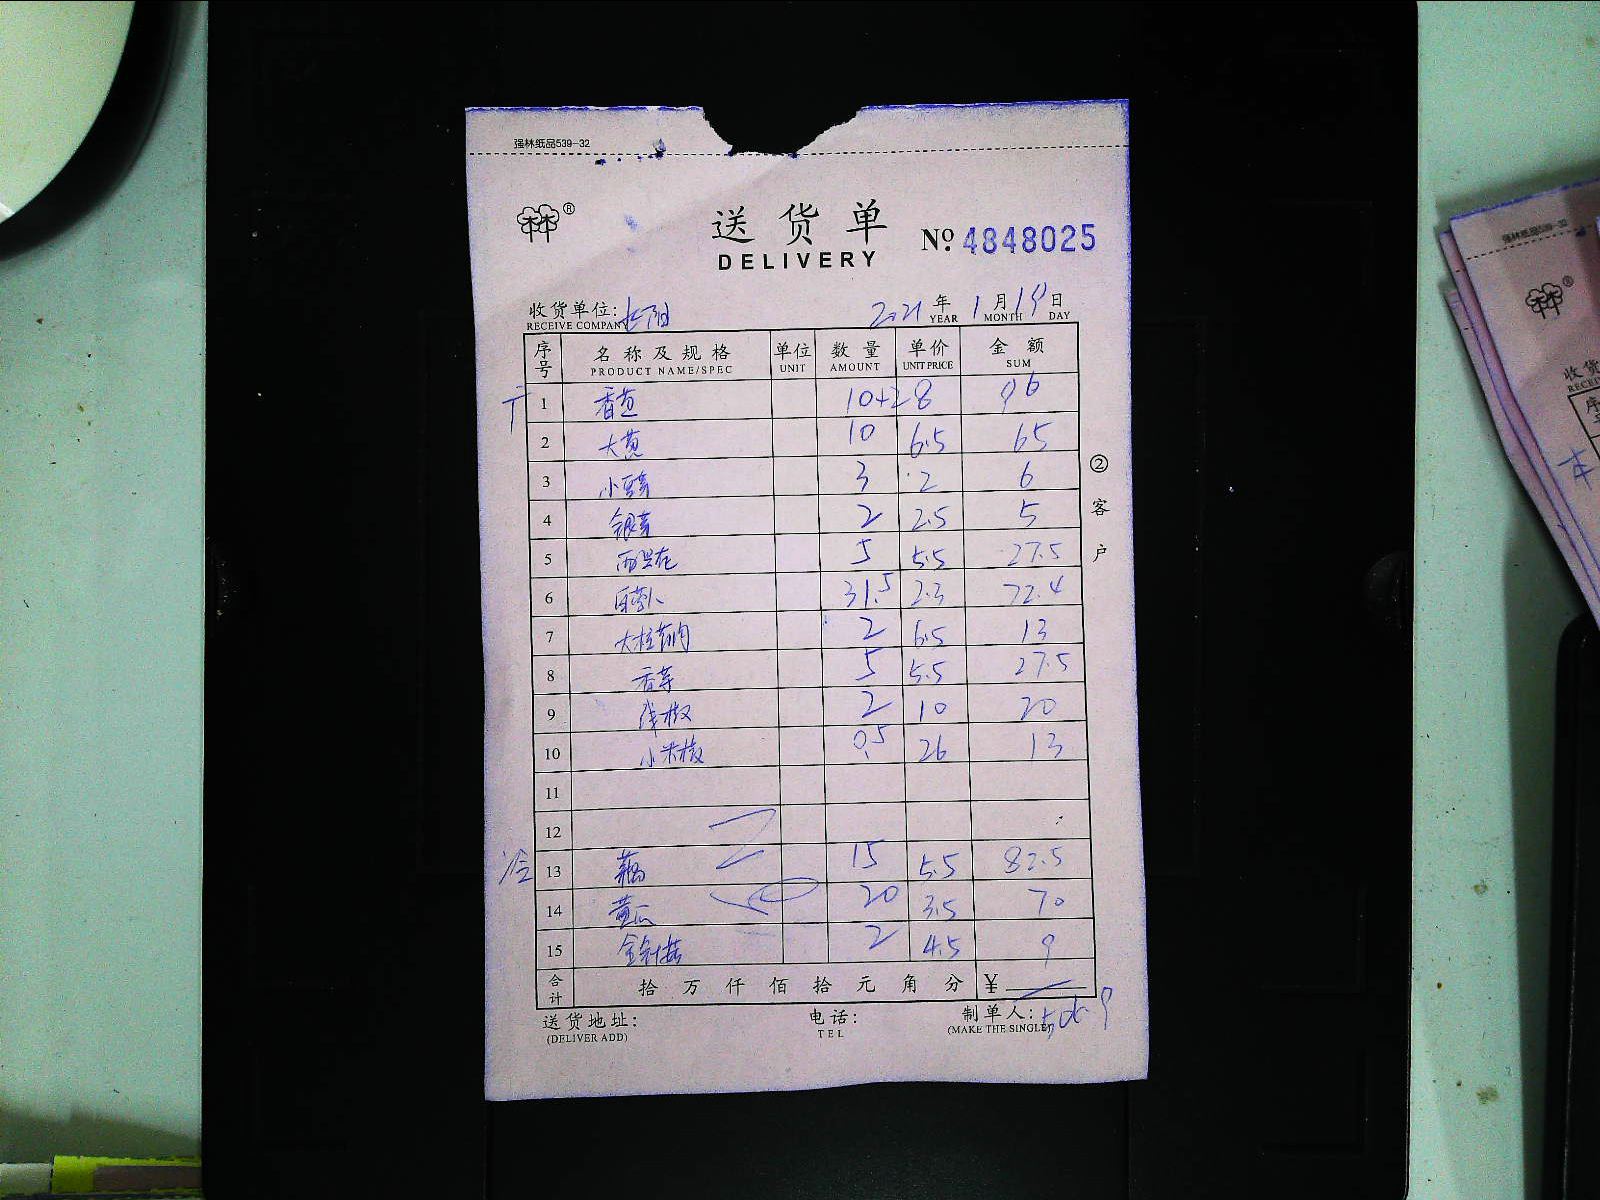 强林纸品539-32
林®
送货单
DELIVERY
No. 4848025
收货单位:
RECEIVE COMPANY
2021 年 1 月 19 日
YEAR MONTH DAY
序号 名称及规格 单位 数量 单价 金额
PRODUCT NAME/SPEC UNIT AMOUNT UNIT PRICE SUM
1 香芭 10+2 8 96
2 大葱 10 6.5 65
3 小豆芽 3 2 6
4 银芽 2 2.5 5
5 西兰花 5 5.5 27.5
6 白萝卜 31.5 2.3 72.4
7 2 6.5 13
8 香芹 5 5.5 27.5
9 线椒 2 10 20
10 小米椒 0.5 26 13
11
12
13 藕 15 5.5 82.5
14 黄瓜 20 3.5 70
15 金针菇 2 4.5 9
合计 拾 万 仟 佰 拾 元 角 分 ¥
506.9
送货地址: 电话: 制单人:
(DELIVER ADD) TEL (MAKE THE SINGLE)
②客户
强林纸品539-32
林®
收货